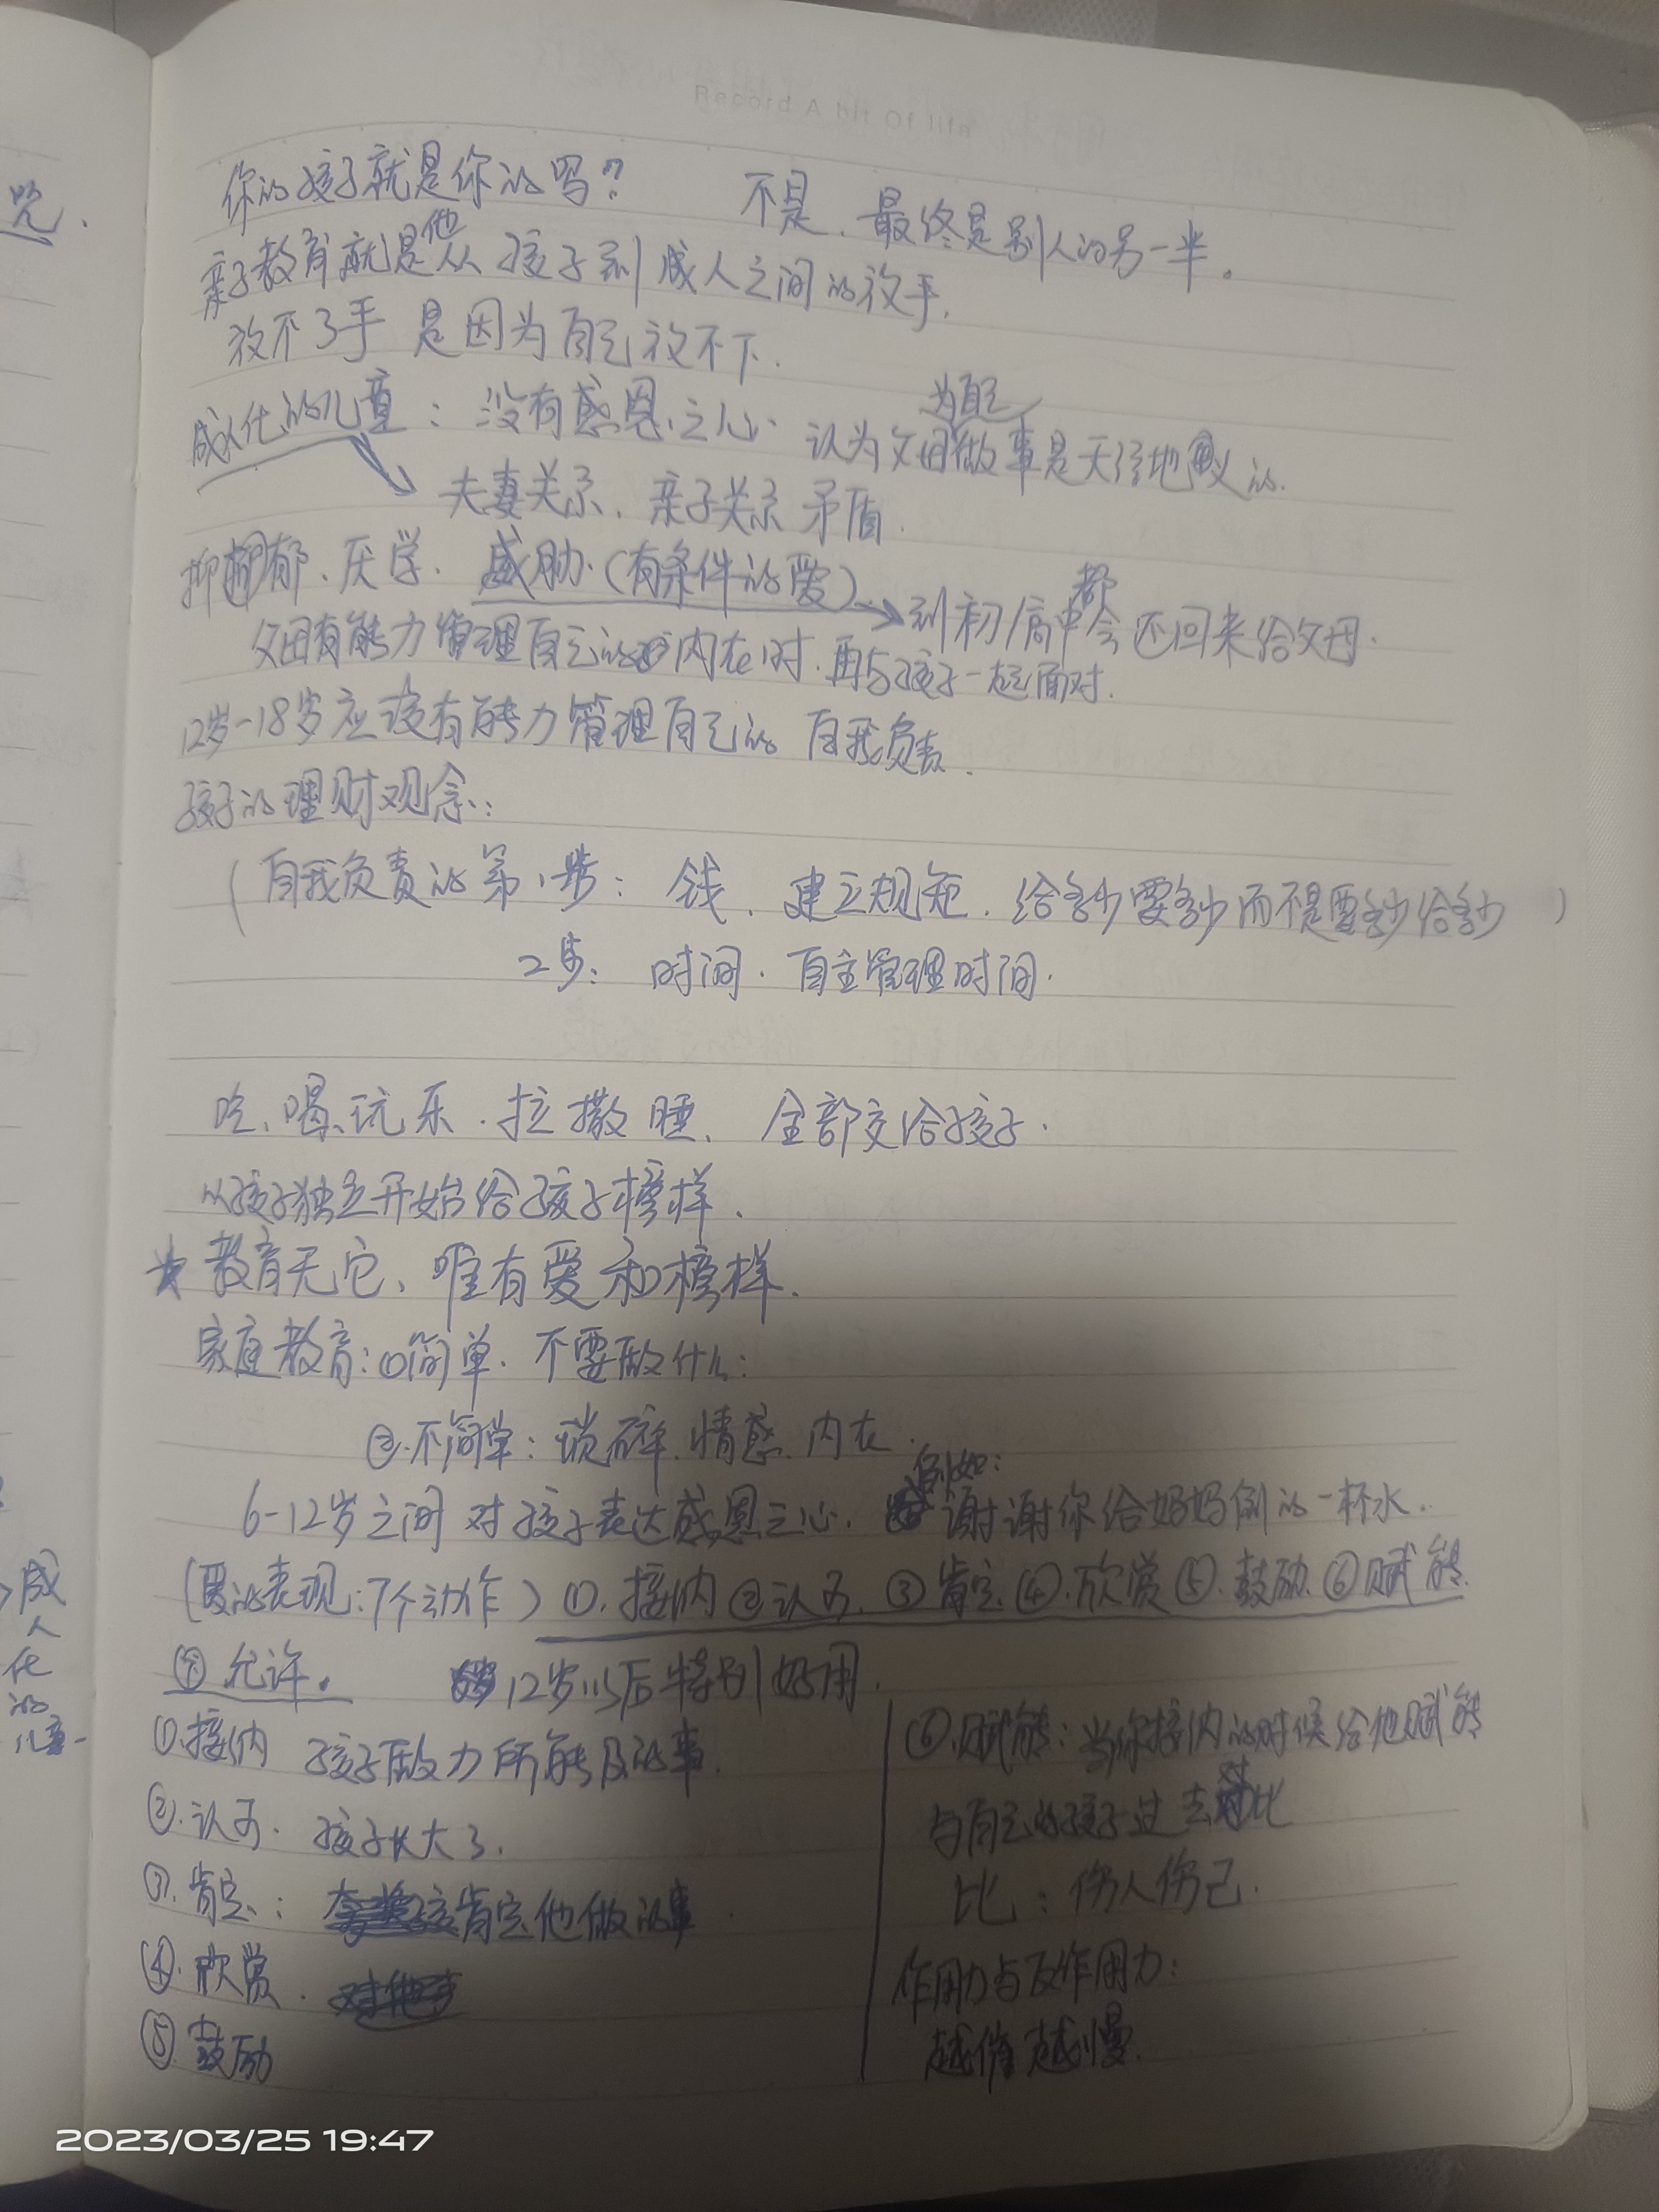 Record A bit Of life
你的孩子就是你的吗？ 不是，最终是别人的另一半。
亲子教育就是他从孩子到成人之间的放手。
放不了手 是因为自己放不下.
成人化的儿童：没有感恩之心 认为父母为自己做事是天经地义的.
夫妻关系、亲子关系矛盾.
抑郁、厌学、威胁（有条件的爱）→到初/高中都会还回来给父母.
父母有能力管理自己的内在时.再与孩子一起面对.
12岁-18岁应该有能力管理自己的 自我负责.
孩子的理财观念：
（自我负责的第1步：钱、建立规矩、给多少要多少而不是要多少给多少）
2步：时间.自主管理时间.
吃、喝、玩乐.拉撒睡、全部交给孩子.
从孩子独立开始给孩子榜样.
★教育无它、唯有爱和榜样.
家庭教育：①简单.不要做什么：
②不简单：琐碎.情感.内在.
6-12岁之间对孩子表达感恩之心. 例如：谢谢你给妈妈倒的一杯水..
（爱的表现：7个动作）①.接纳②认可.③肯定④.欣赏⑤.鼓励.⑥赋能.
⑦允许. 12岁以后特别好用.
①.接纳 孩子做力所能及的事.
②.认可. 孩子长大了.
③.肯定：肯定他做的事.
④.欣赏.
⑤鼓励
⑥.赋能：当你接纳的时候给他赋能
与自己的孩子过去对比
比：伤人伤己.
作用力与反作用力：
越催越慢.
咒.
成
人
化
的
儿童
2023/03/25 19:47